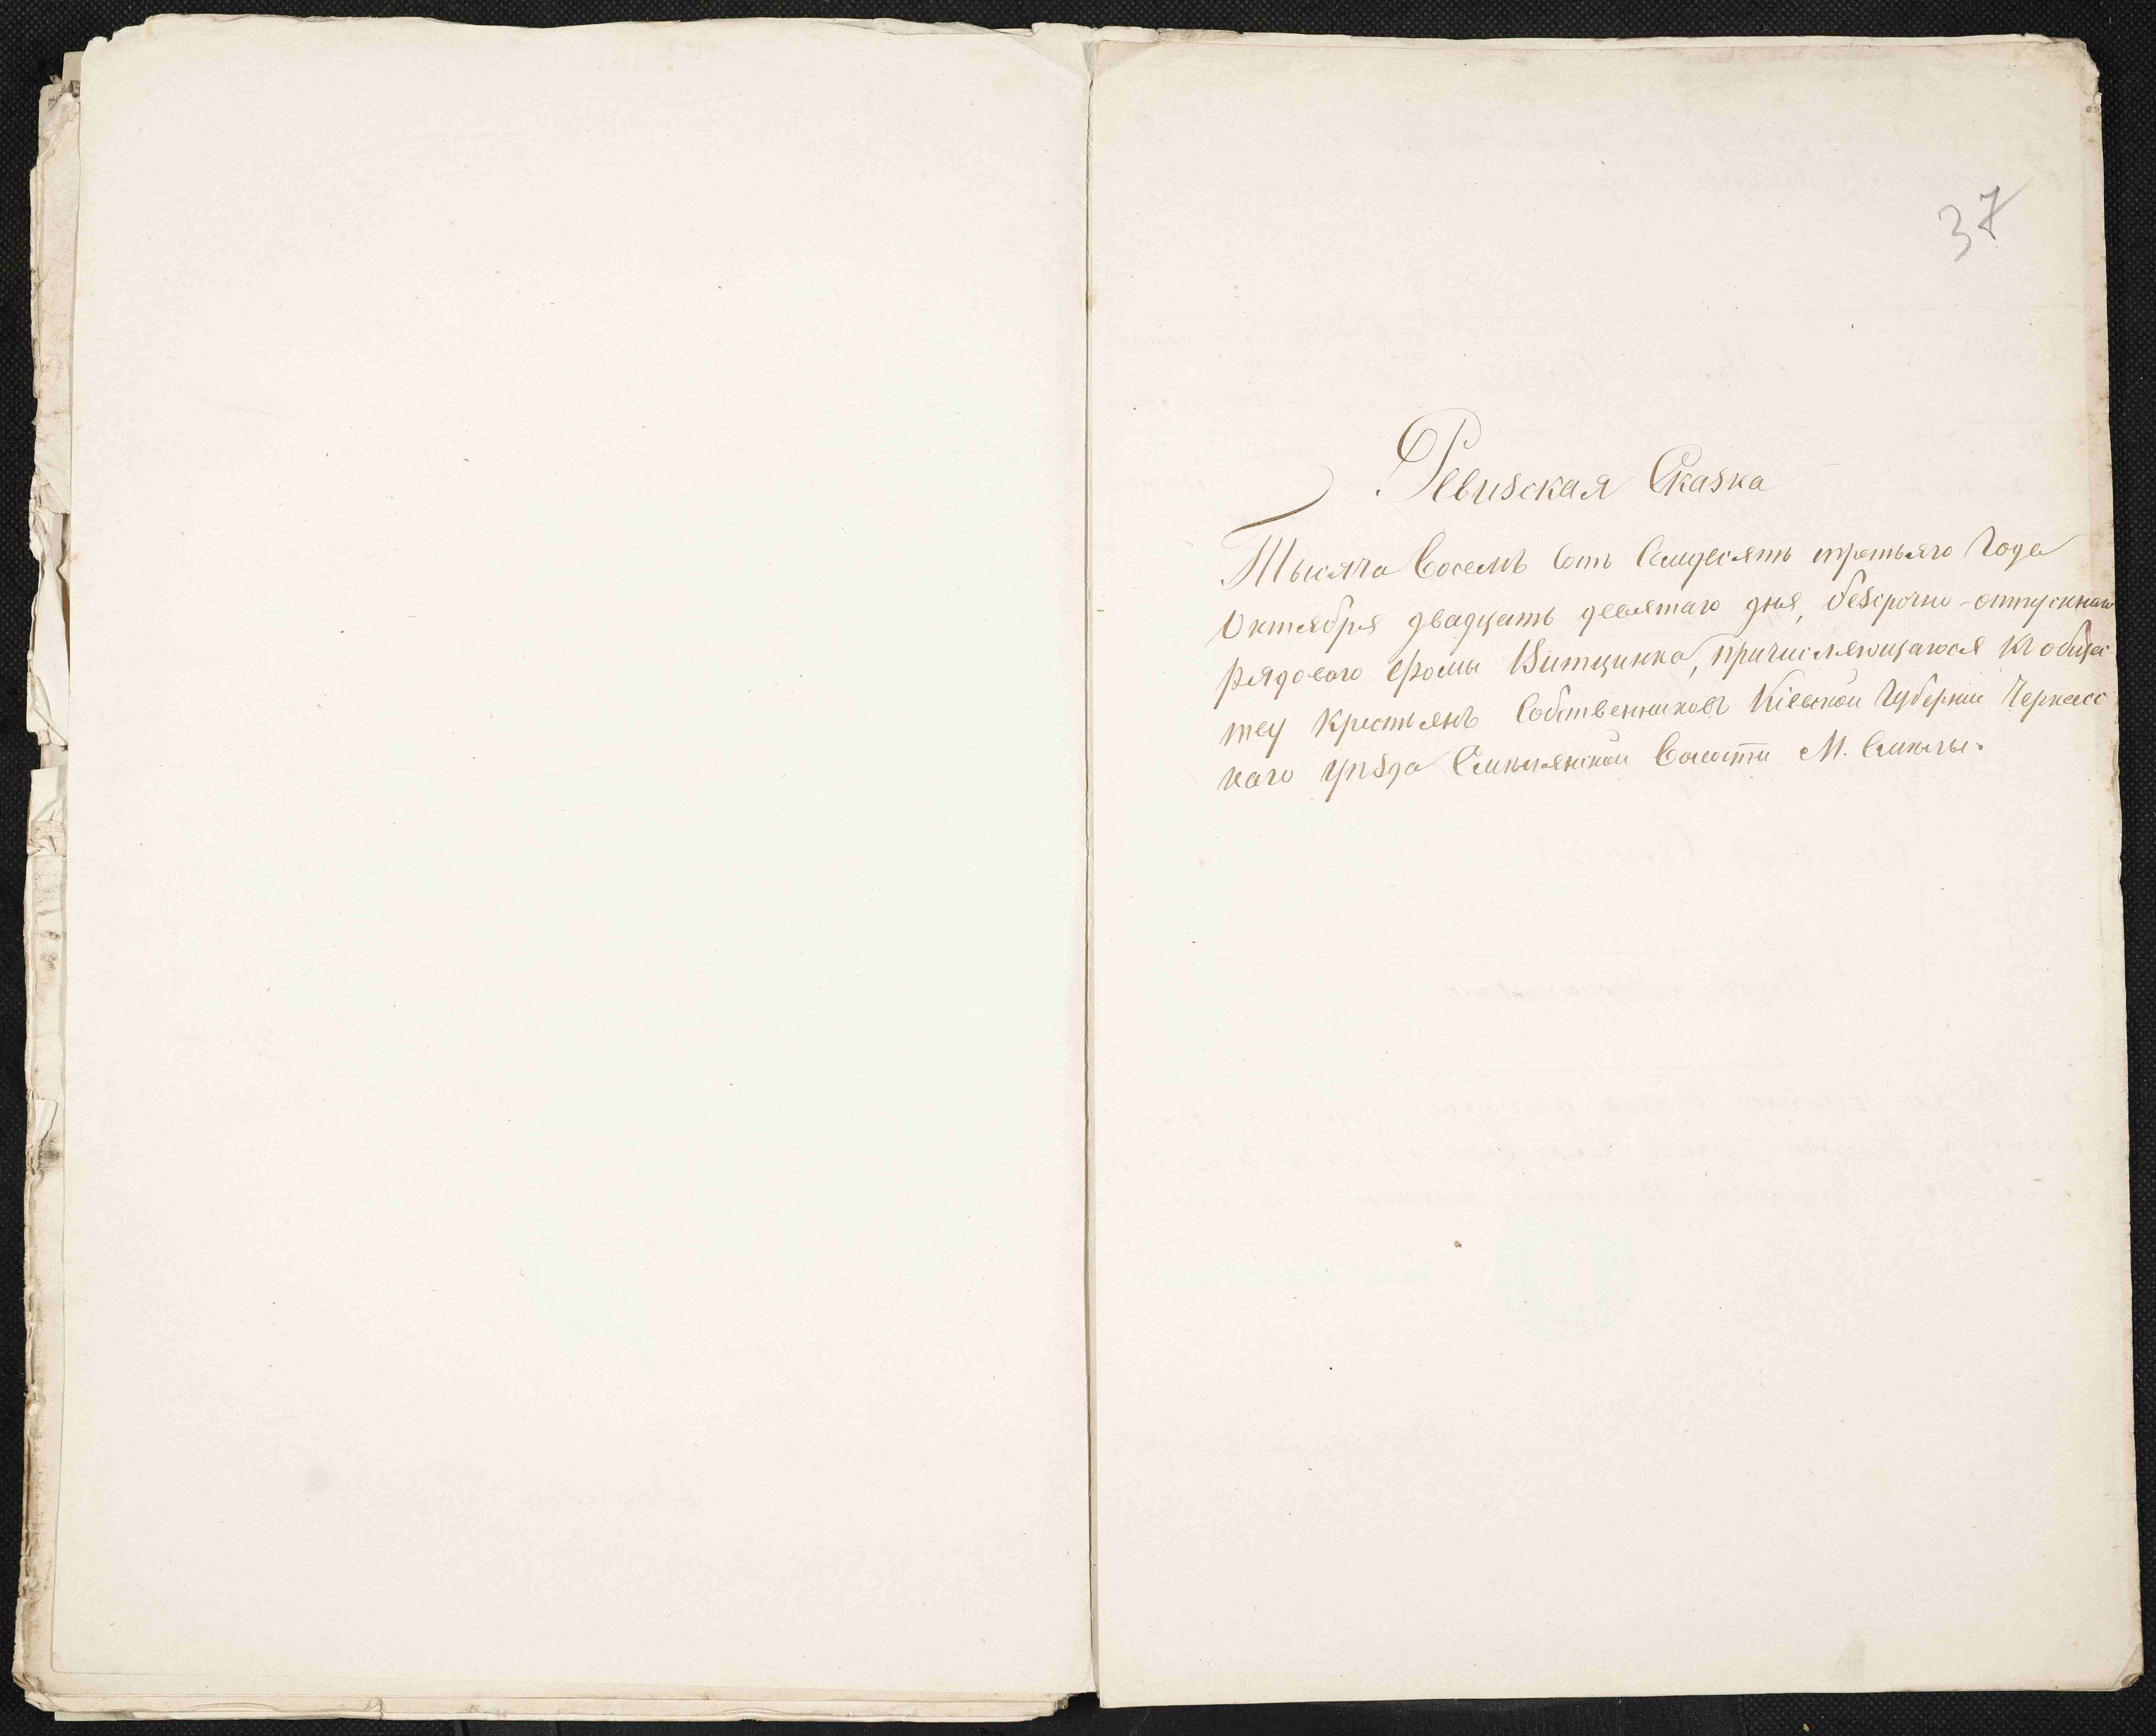 37
Ревизская Сказка
Тысяча Восемъ Сотъ Семдесятъ третьяго Года
Октября двадцать девятаго дня, безсрочно-отпускнаго
рядового Фомы Витщинка, причисляющагося къ общес-
тву Крестьянъ Собственниковъ Кіевской Губерніи Черкасс
каго уѣзда Смѣлянской Волости М. Смѣлы.